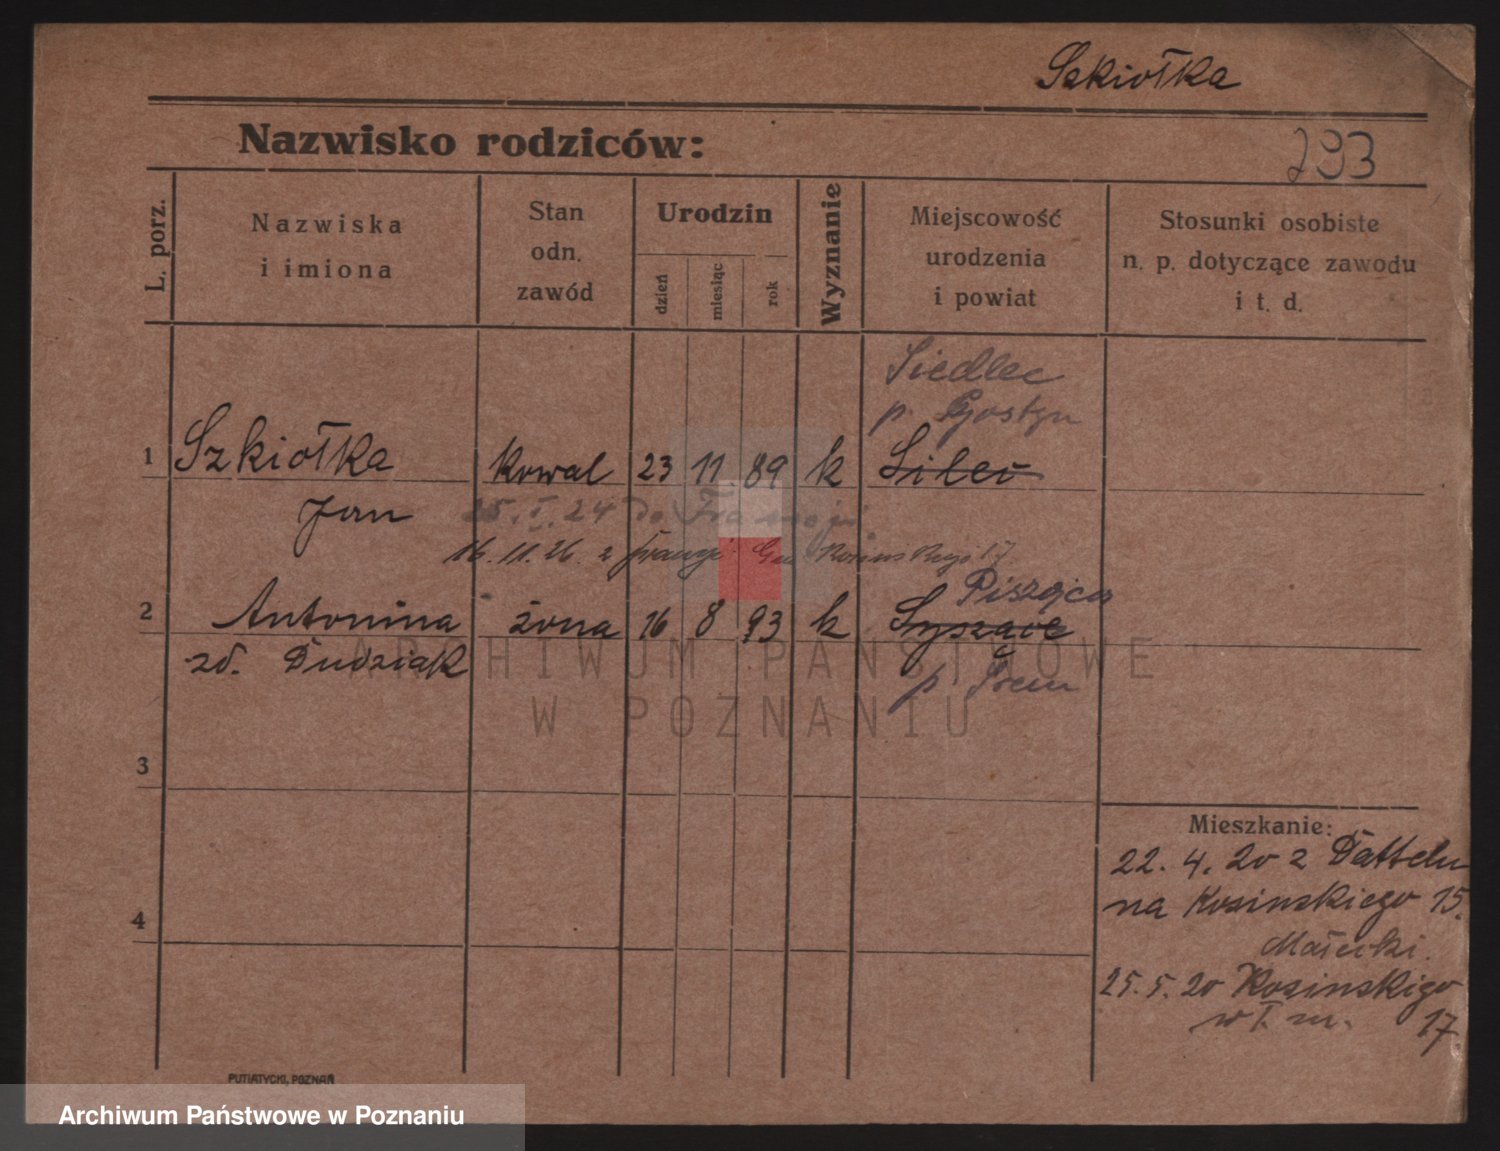 Szkiołka
Nazwisko rodziców:
293
L. porz.
Nazwiska
i imiona
Stan
odn.
zawód
Urodzin
dzień
miesiąc
rok
Wyznanie
Miejscowość
urodzenia
i powiat
Stosunki osobiste
n. p. dotyczące zawodu
i t. d.
Siedlec
p. Gostyn
1 Szkiołka kowal 23 11 89 k
Jan 25. I. 24 Do Francji
16. 11. 26. z
Piszące
2 Antonina żona 16 8 93 k
zd. Dudziak
p. Śrem
ARCHIWUM PAŃSTWOWE
W POZNANIU
3
Mieszkanie:
22. 4. 20 z Datteln
na Kosinskiego 15.
4
Małecki.
25. 5. 20 Kosinskigo
w I. m. 17.
PUTIATYCKI, POZNAŃ
Archiwum Państwowe w Poznaniu